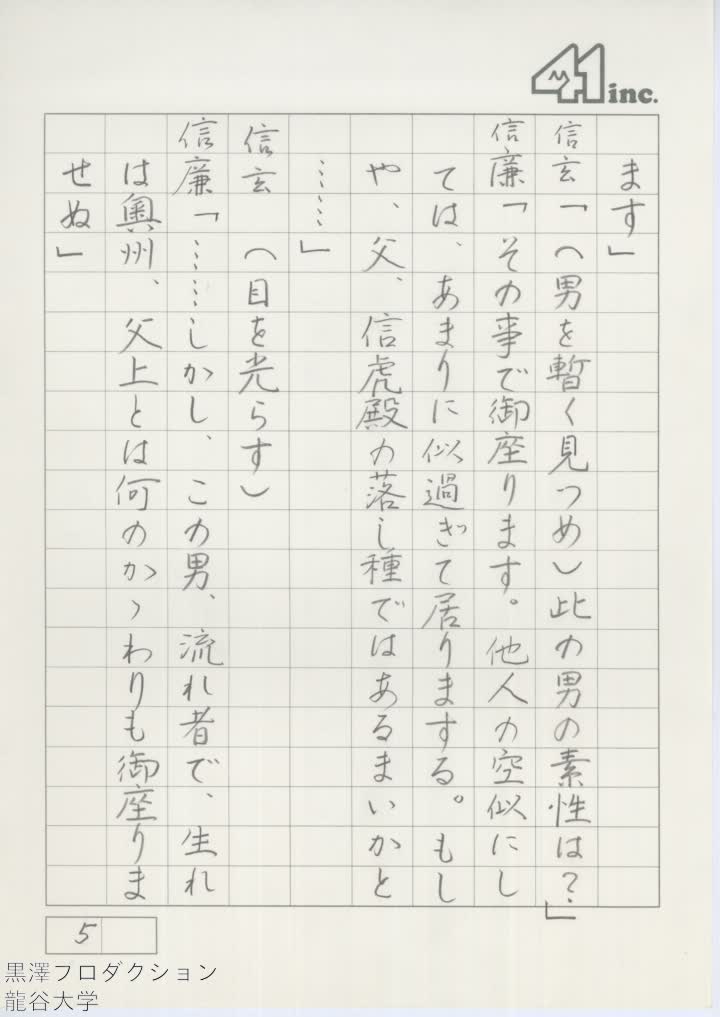 41 inc.
ます」
信玄「(男を暫く見つめ)此の男の素性は?」
信廉「その事で御座ります。他人の空似にし
ては、あまりに似過ぎて居りまする。もし
や、父、信虎殿の落し種ではあるまいかと
……」
信玄 (目を光らす)
信廉「……しかし、この男、流れ者で、生れ
は奥州、父上とは何のかゝわりも御座りま
せぬ」
5
黒澤プロダクション
龍谷大学